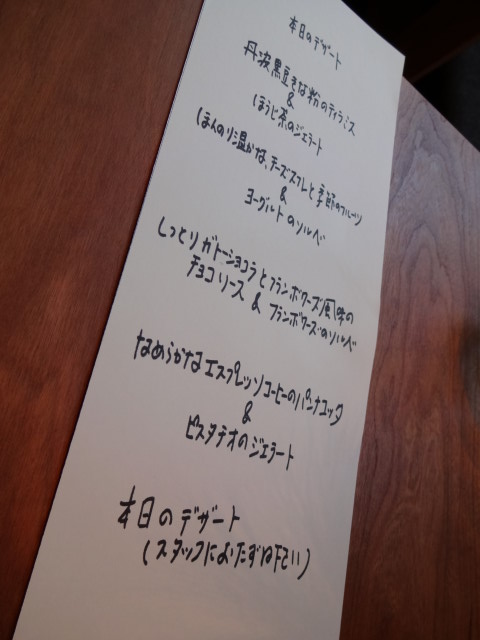 本日のデザート
丹波黒豆きな粉のティラミス
&
ほうじ茶のジェラート
ほんのり温かな、チーズスフレと季節のフルーツ
&
ヨーグルトのソルベ
しっとりガトーショコラとフランボワーズ風味の
チョコソース & フランボワーズのソルベ
なめらかなエスプレッソコーヒーのパンナコッタ
&
ピスタチオのジェラート
本日のデザート
(スタッフにおたずね下さい)